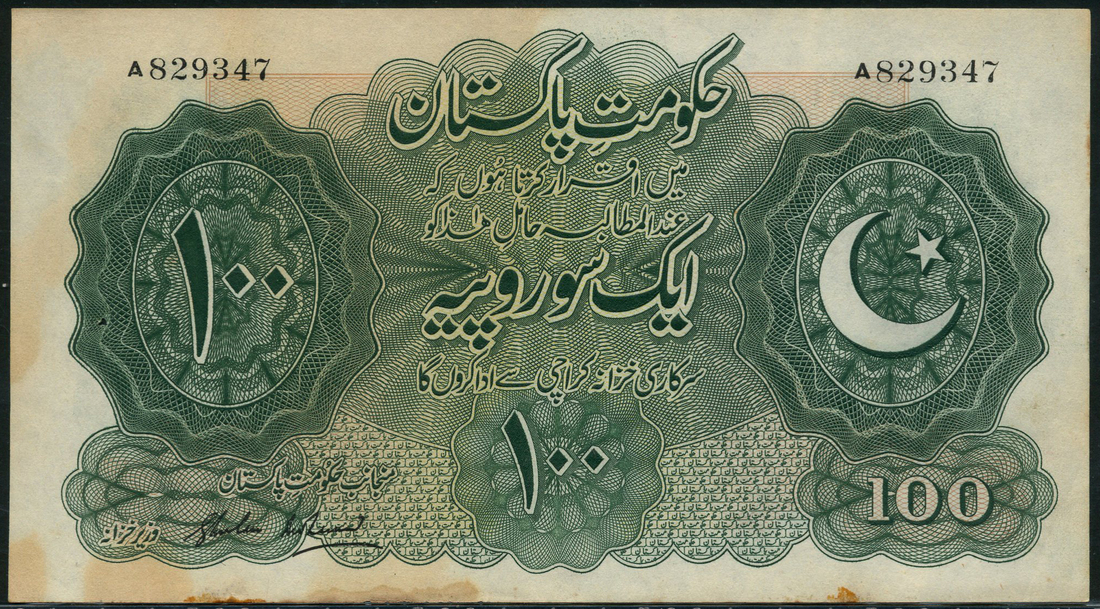 A829347
A829347
حکومتِ پاکستان
میں اقرار کرتا ہُوں کہ
عند المطالبہ حاملِ ہٰذا کو
ایک سو روپیہ
سرکاری خزانہ کراچی سے ادا کروں گا
۱۰۰
۱۰۰
منجانب حکومت پاکستان
وزیر خزانہ
100